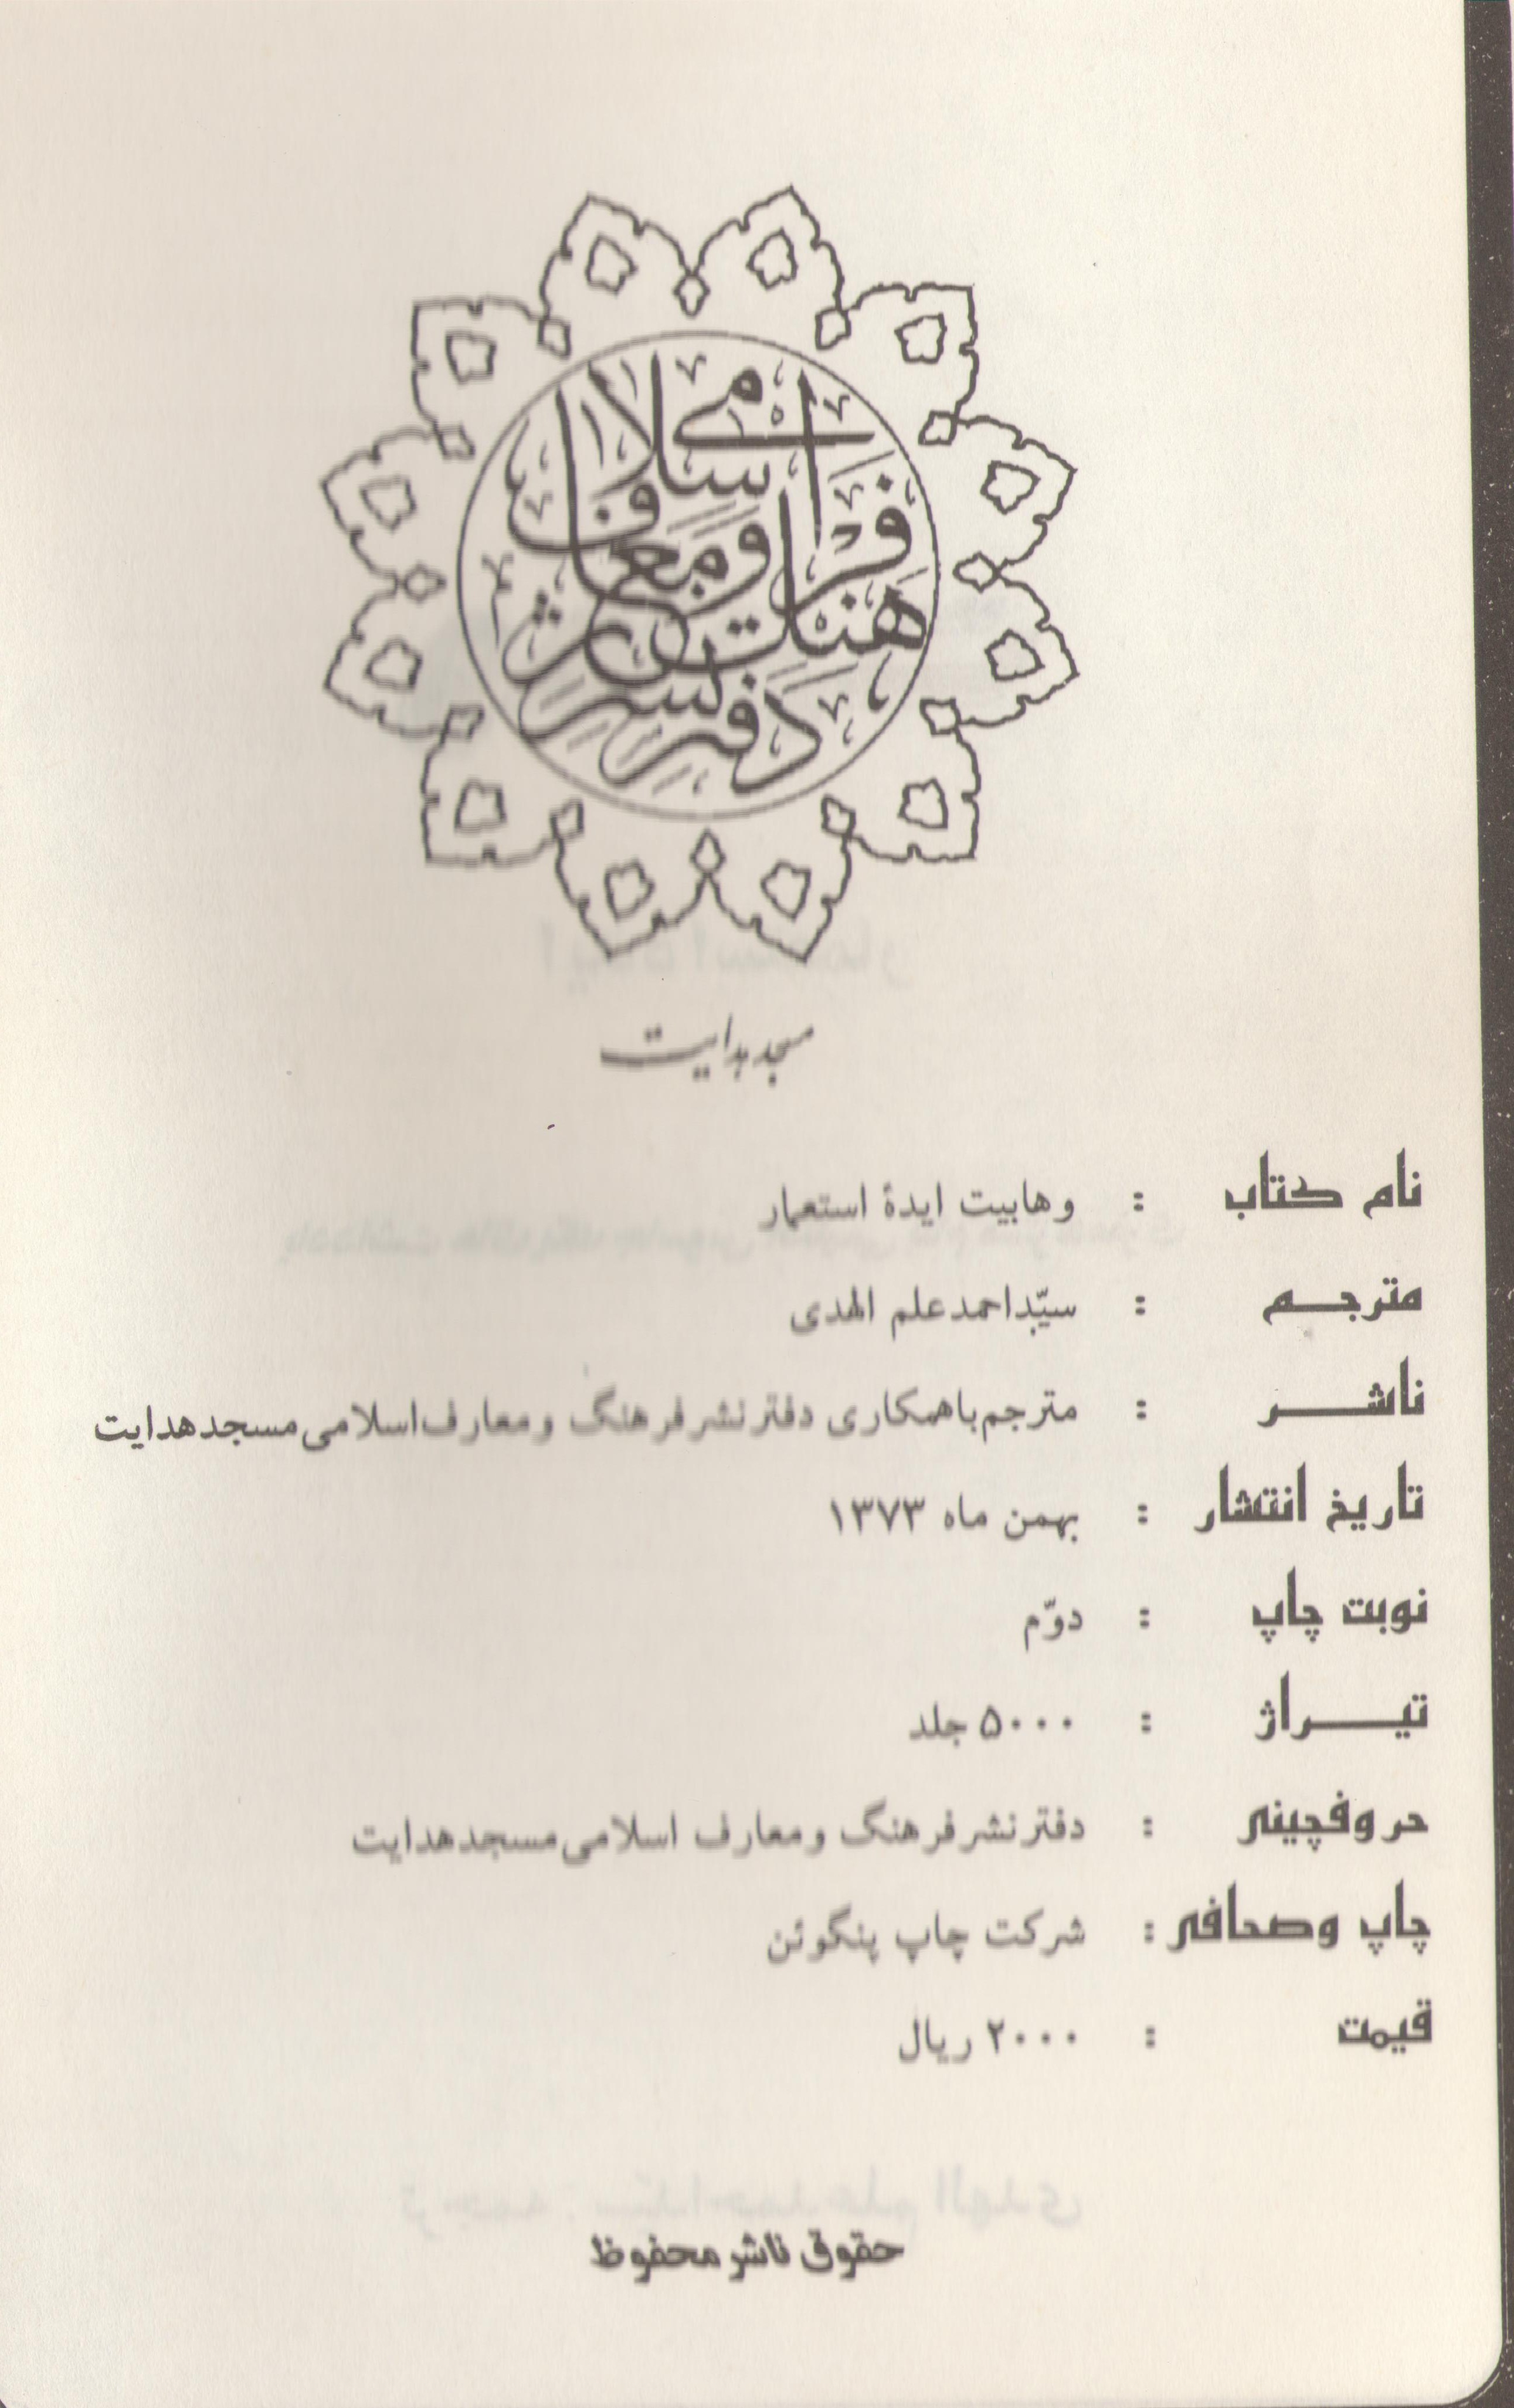 دفتر نشر فرهنگ و معارف اسلامی
مسجد هدایت
نام کتاب : وهابیت ایدهٔ استعمار
مترجم : سیّد احمد علم الهدی
ناشر : مترجم با همکاری دفتر نشر فرهنگ و معارف اسلامی مسجد هدایت
تاریخ انتشار : بهمن ماه ۱۳۷۳
نوبت چاپ : دوّم
تیراژ : ۵۰۰۰ جلد
حروفچینی : دفتر نشر فرهنگ و معارف اسلامی مسجد هدایت
چاپ وصحافی : شرکت چاپ پنگوئن
قیمت : ۲۰۰۰ ریال
حقوق ناشر محفوظ